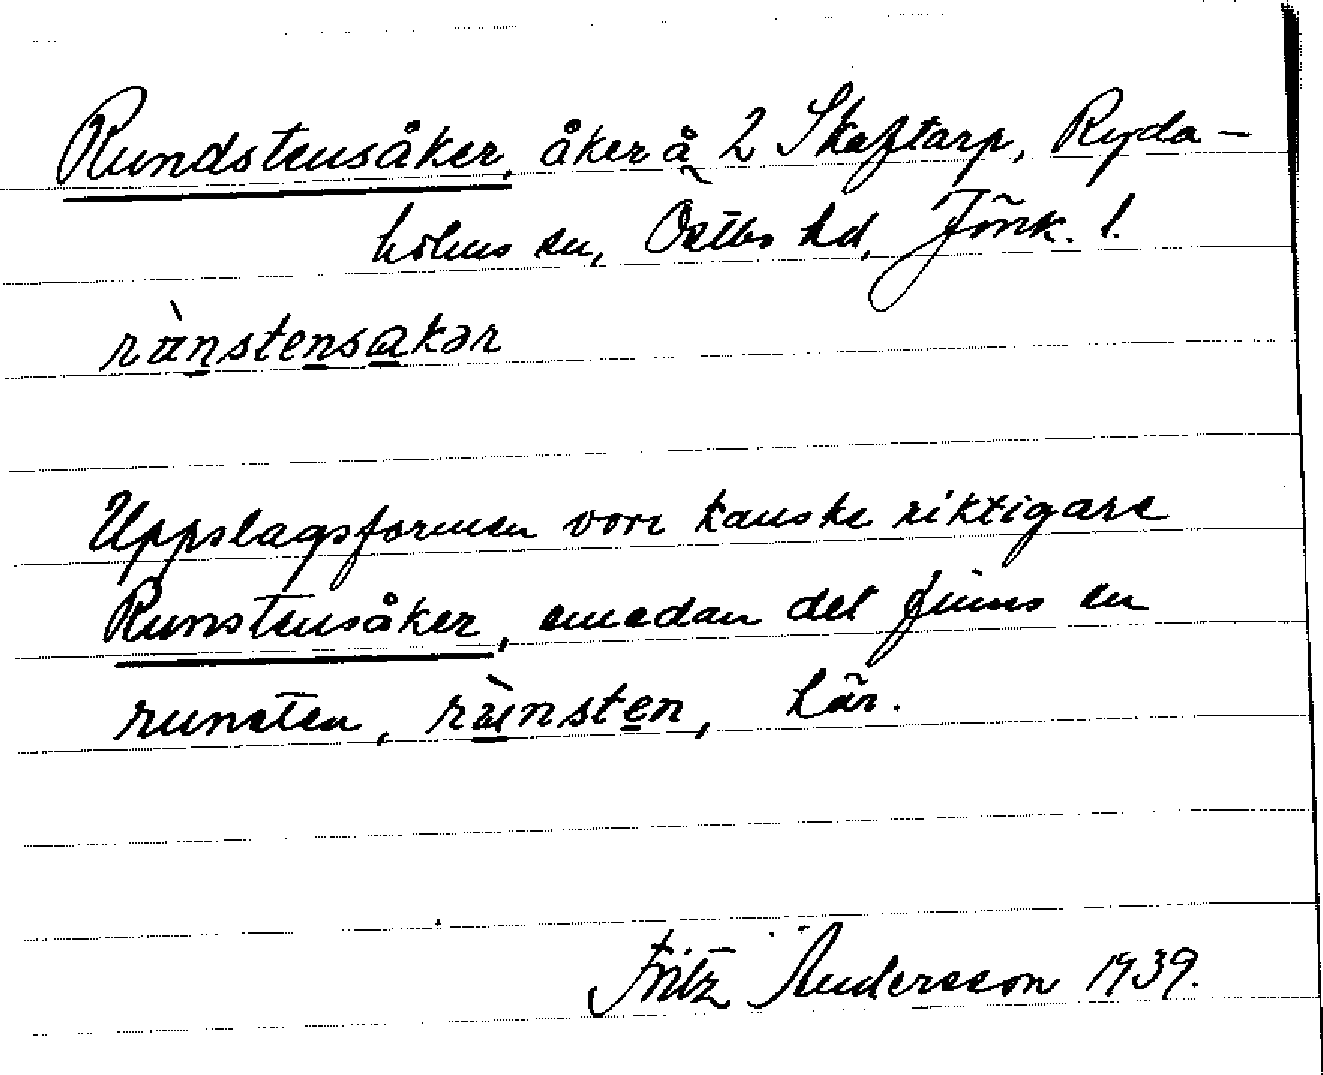 Rundstensåker, åker å 2 Skaftarp, Ryda-
holms sn, Östbo hd, Jönk. l.
rànstensakər
Uppslagsformen vore kanske riktigare
Runstensåker, emedan det finns en
runsten, rùnsten, här.
Fritz Andersson 1939.